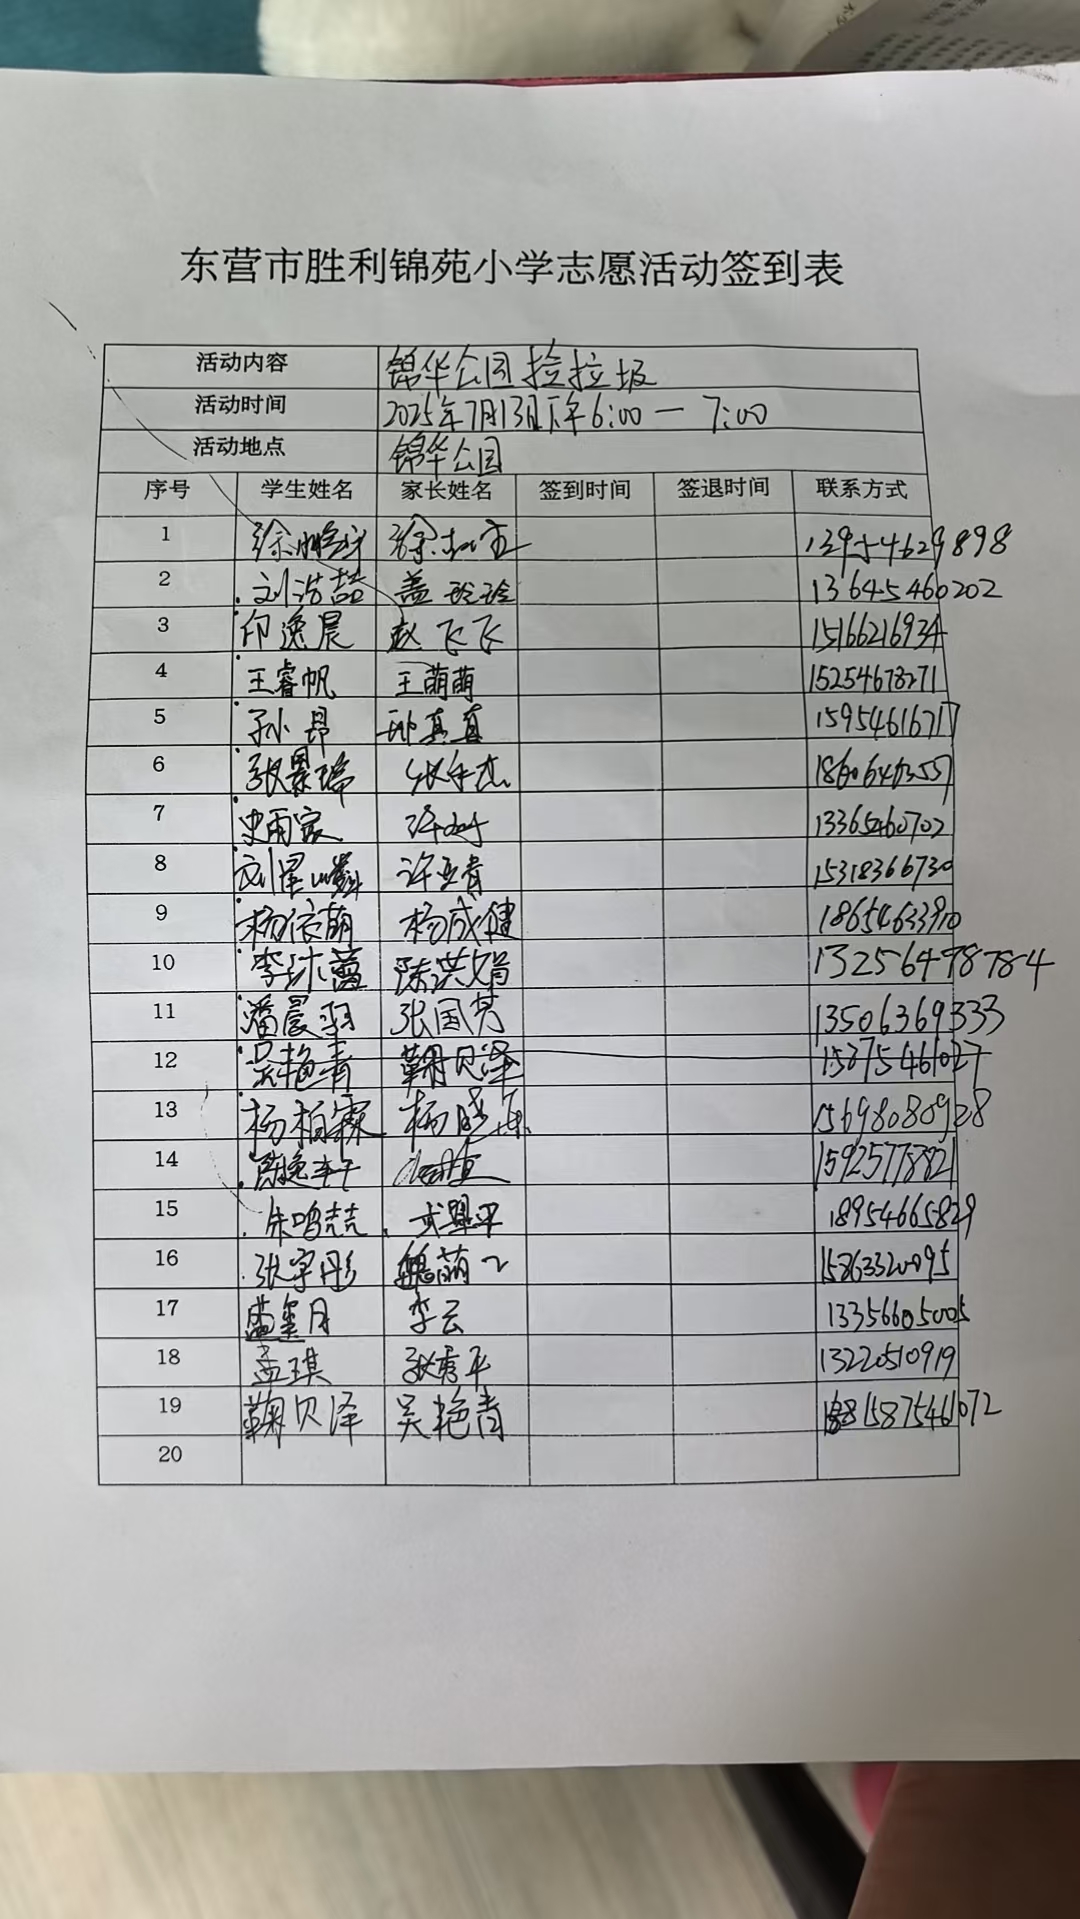 东营市胜利锦苑小学志愿活动签到表
活动内容 锦华公园捡垃圾
活动时间 2025年7月13日下午6:00—7:00
活动地点 锦华公园
序号 学生姓名 家长姓名 签到时间 签退时间 联系方式
1 13954629898
2 刘浩喆 盖玲玲 13645460202
3 印逸晨 赵飞飞 15166216934
4 王睿帆 王萌萌 15254673271
5 孙昂 真真 15954616717
6 张景瑞
7 史雨家 13365460702
8 刘星 许立青 15318366730
9 杨依萌 杨成健 18654633910
10 李沐蕾 陈洪娟 13256498784
11 潘晨羽 张国芳 13506369333
12 吴艳青 鞠贝泽
13 杨柏霖 杨晓 15698080928
14 15925778821
15 朱鸣喆 18954665829
16 张宇彤 魏萌 15863320095
17 盖玺月 李云 13356605005
18 孟琪 张秀平 13220510919
19 鞠贝泽 吴艳青 15875461072
20